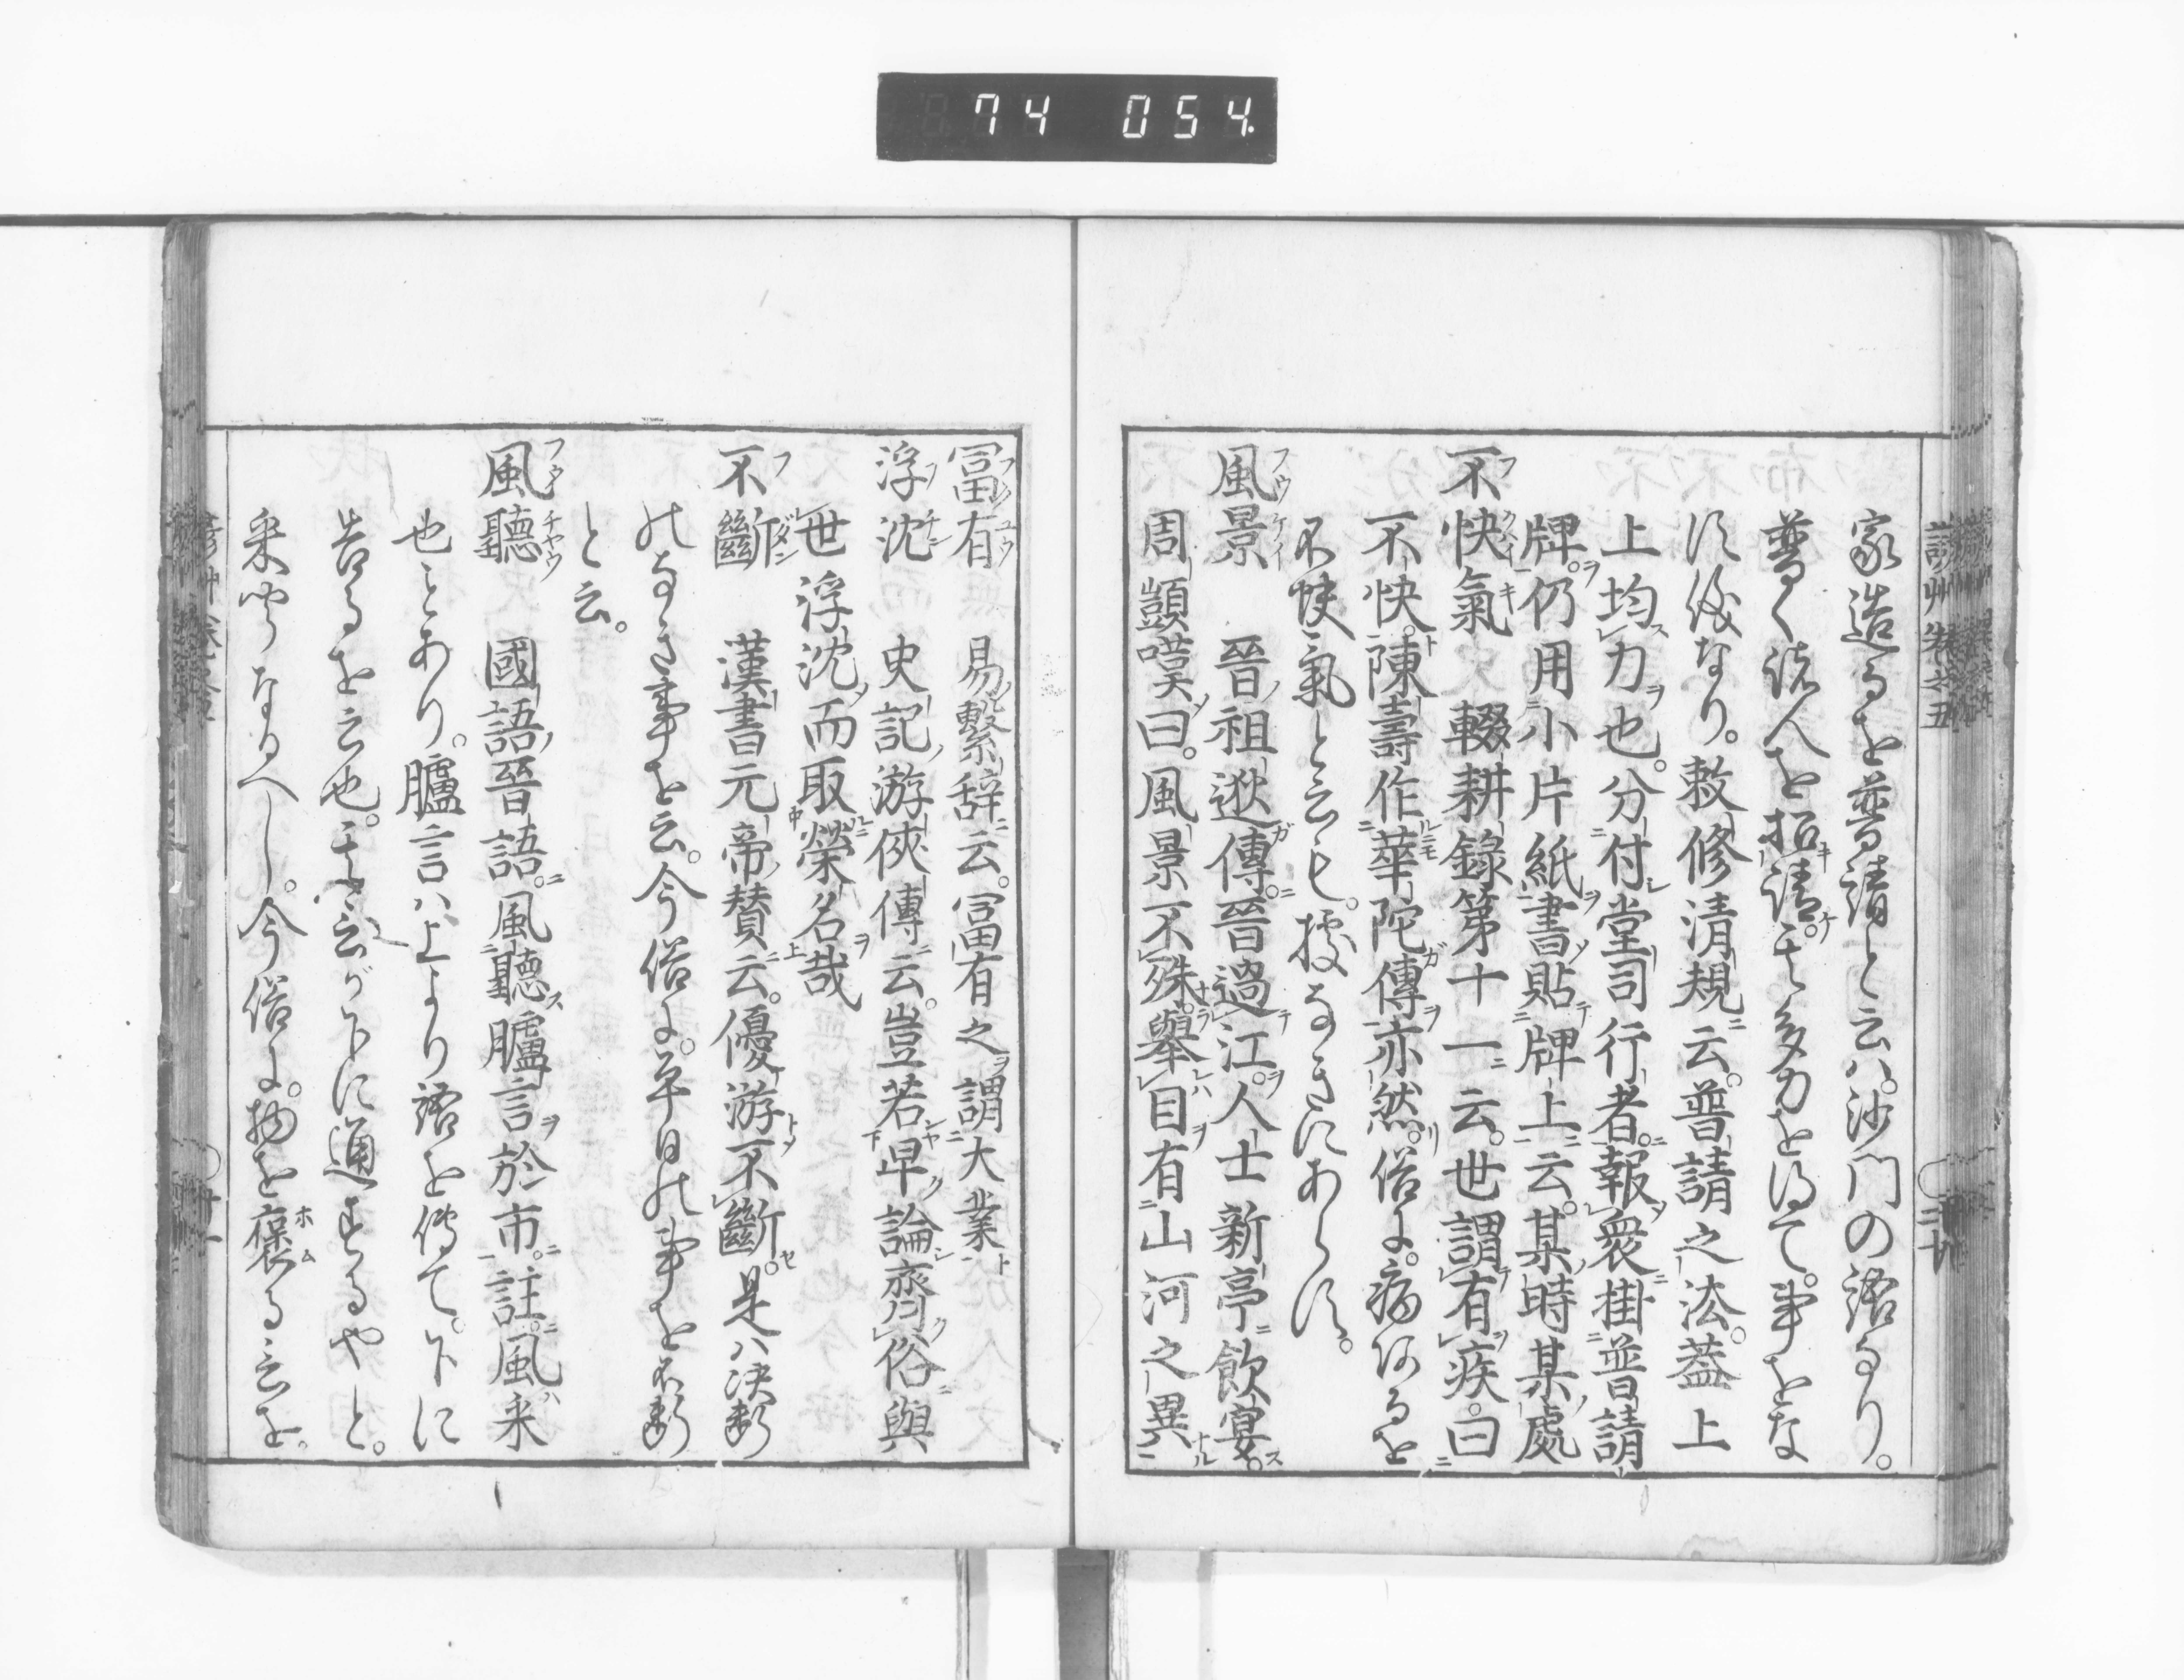 74 054.
家造るを普請と云ハ。沙門の語なり。
普く諸人を招請。其多力を得て。事をな
す儀なり。敕修清規云。普請之法。蓋上
上均力也。分付堂司行者。報衆掛普請
牌。仍用小片紙書貼牌上云。某時某處
不快氣 輟耕錄第十一云。世謂有疾曰
不快。陳壽作華陀傳亦然。俗に。病あるを
不快氣と云も。據なきにあらす。
風景 晉祖逖傳。晉過江人士新亭飲宴。
周顗嘆曰。風景不殊。舉目有山河之異
冨有 易繫辞云。冨有之謂大業
浮沈 史記游俠傳云。豈若卑論齊俗與
世浮沈而取榮名哉
不斷 漢書元帝賛云。優游不斷。是ハ決断
のなき事を云。今俗に。平日の事を不断
と云。
風聽 國語晉語。風聽臚言於市。註。風采
也とあり。臚言ハ上より語を傳て。下に
告るを云也。
采聽なるへし。今俗に。物を褒る言を。